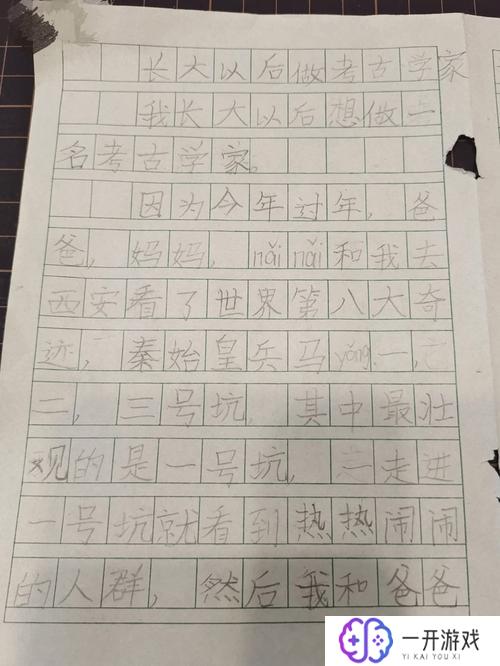 长大以后做考古学家
我长大以后想做一
名考古学家。
因为今年过年，爸
爸，妈妈，nǎi nǎi和我去
西安看了世界第八大奇
迹，秦始皇兵马yǒng。一，
二，三号坑，其中最壮
观的是一号坑，走进
一号坑就看到热热闹闹
的人群，然后我和爸爸
一开游戏
YI KAI YOU XI